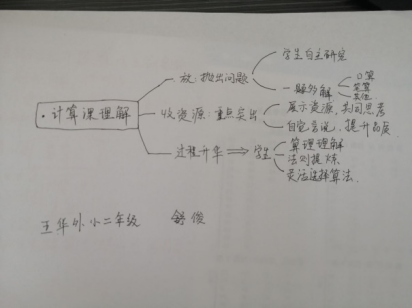 ·计算课理解
放:抛出问题
学生自主研究
一题多解
口算
笔算
其他
收资源:重点突出
展示资源,共同思考
自觉言说,提升品质
过程升华
学生
算理理解
法则提炼
灵活选择算法
王华外小二年级 舒俊